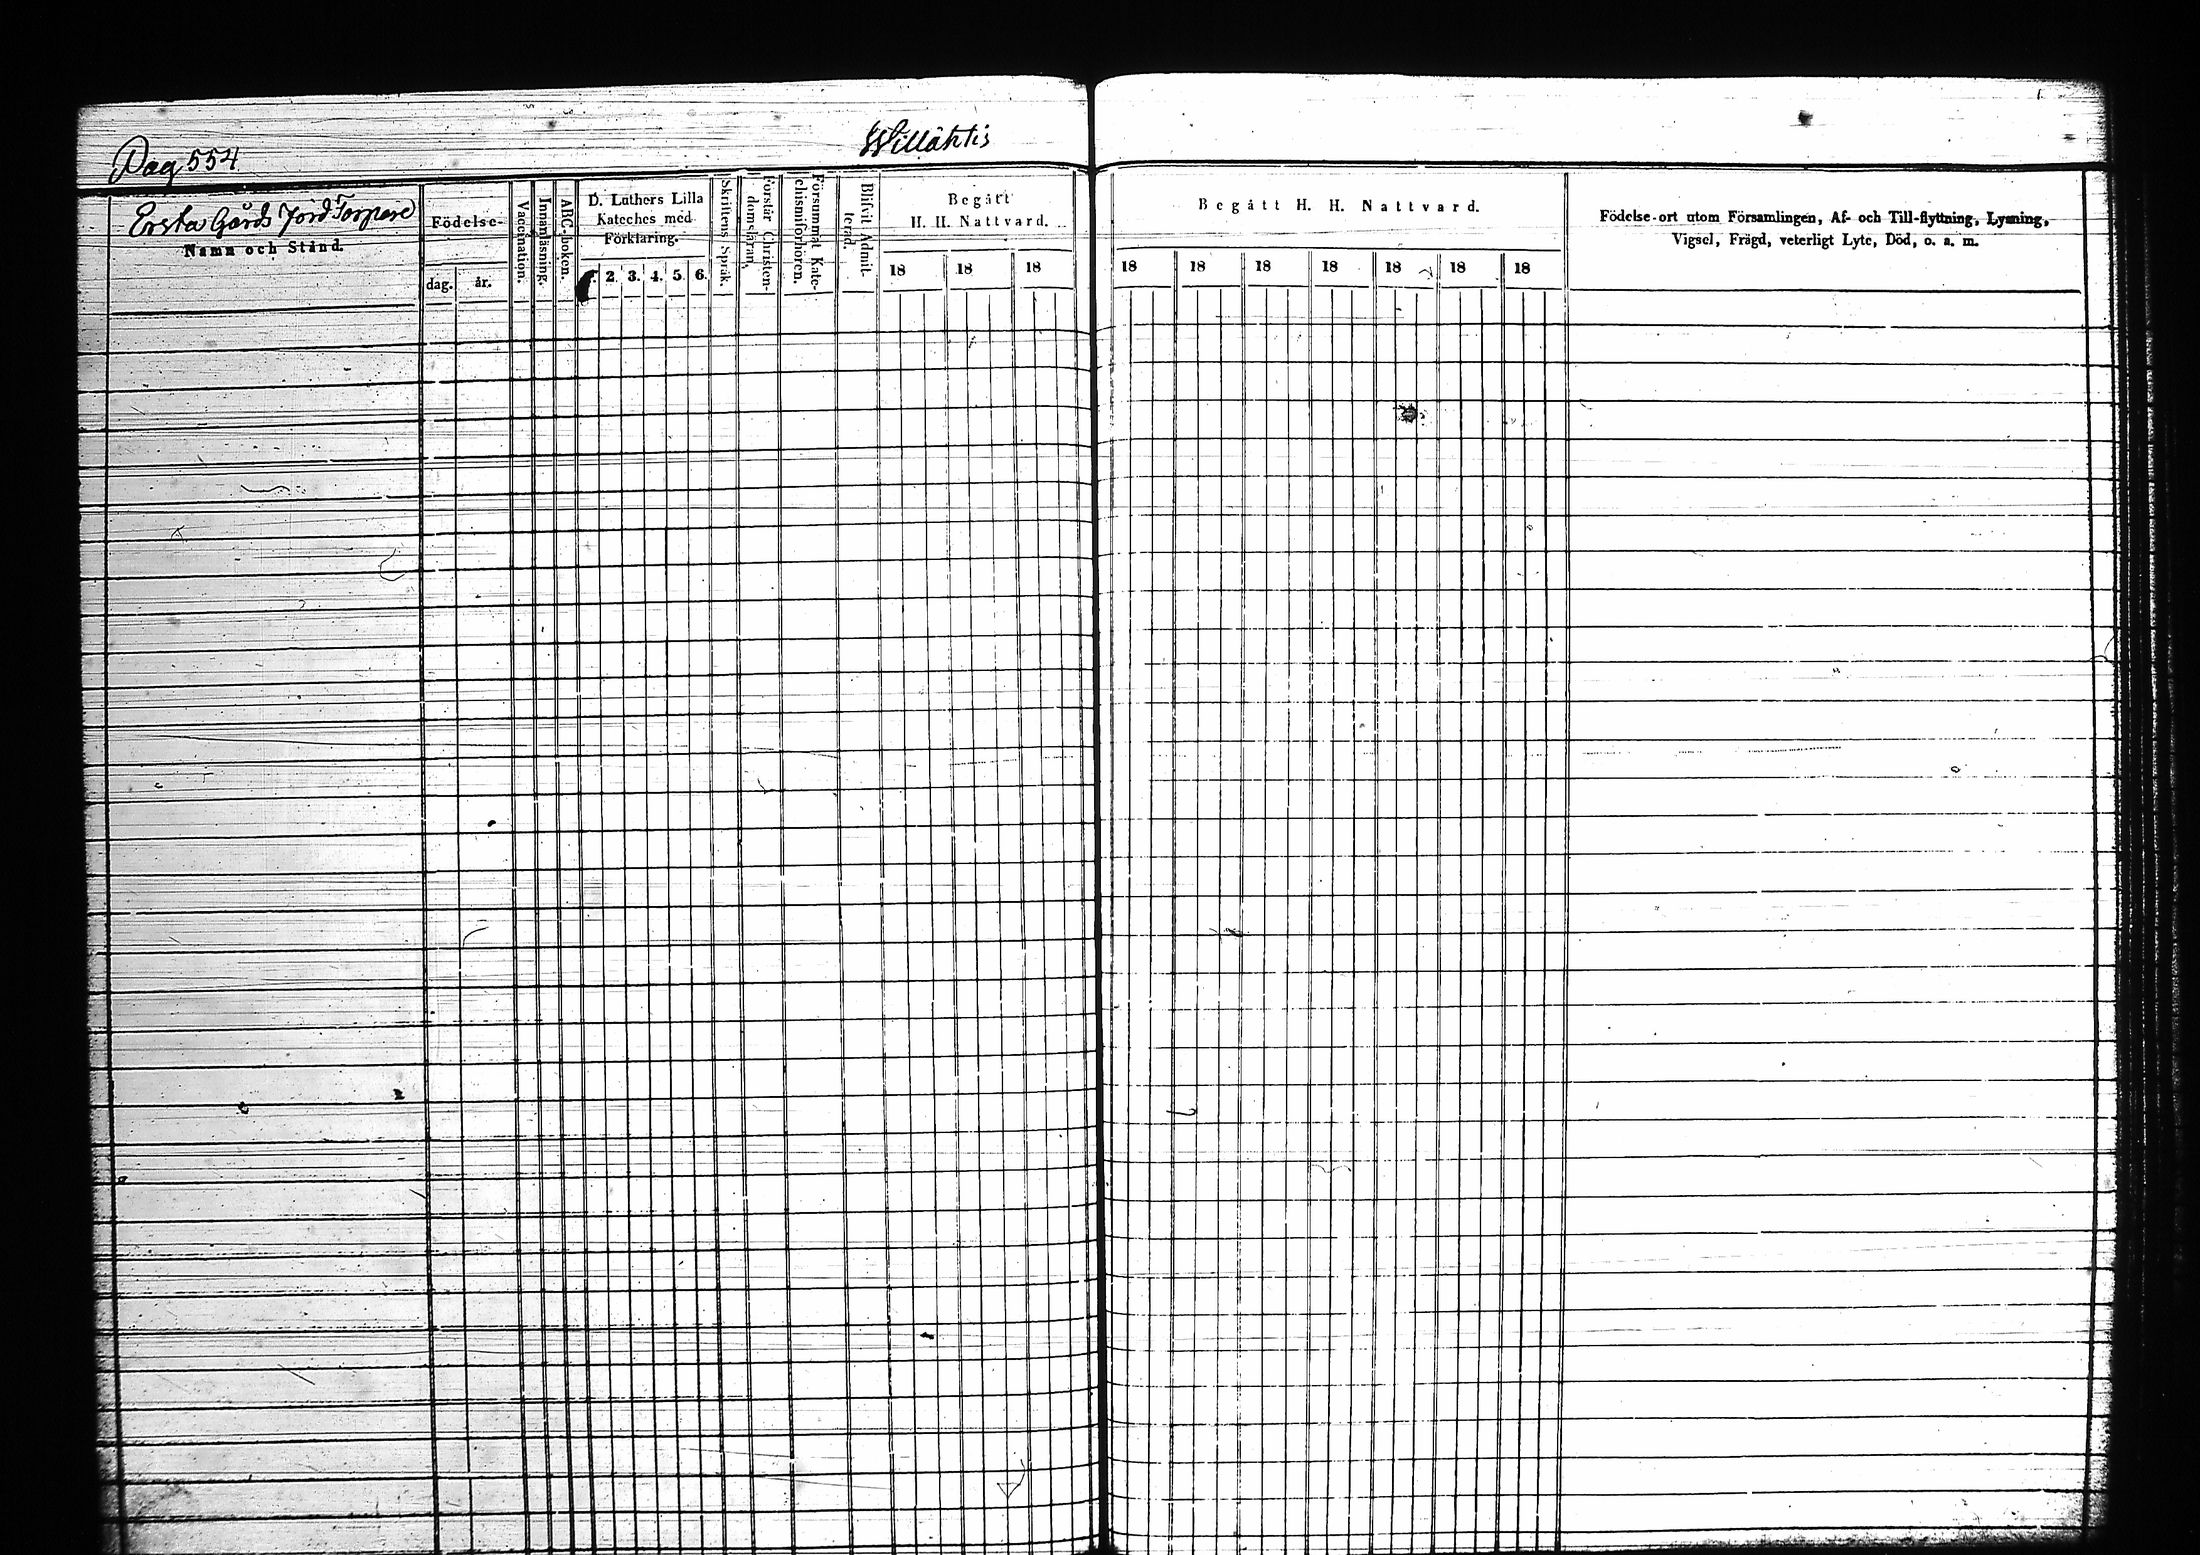 Pag 554
Willähtis
Ersta Gårds Jord Torpare
Namn och Stånd.
Födelse-
dag.
år.
Vaccination.
Innanläsning.
ABC-boken.
D. Luthers Lilla
Kateches med
Förklaring.
2. 3. 4. 5. 6.
Skriftens Språk.
Förstår Christen-
domsläran.
Försummat Kate-
chismiförhören.
Blifvit Admit-
terad.
Begått
H. H. Nattvard.
18 18 18
Begått H. H. Nattvard.
18 18 18 18 18 18 18
Födelse-ort utom Församlingen, Af- och Till-flyttning, Lysning,
Vigsel, Frägd, veterligt Lyte, Död, o. a. m.